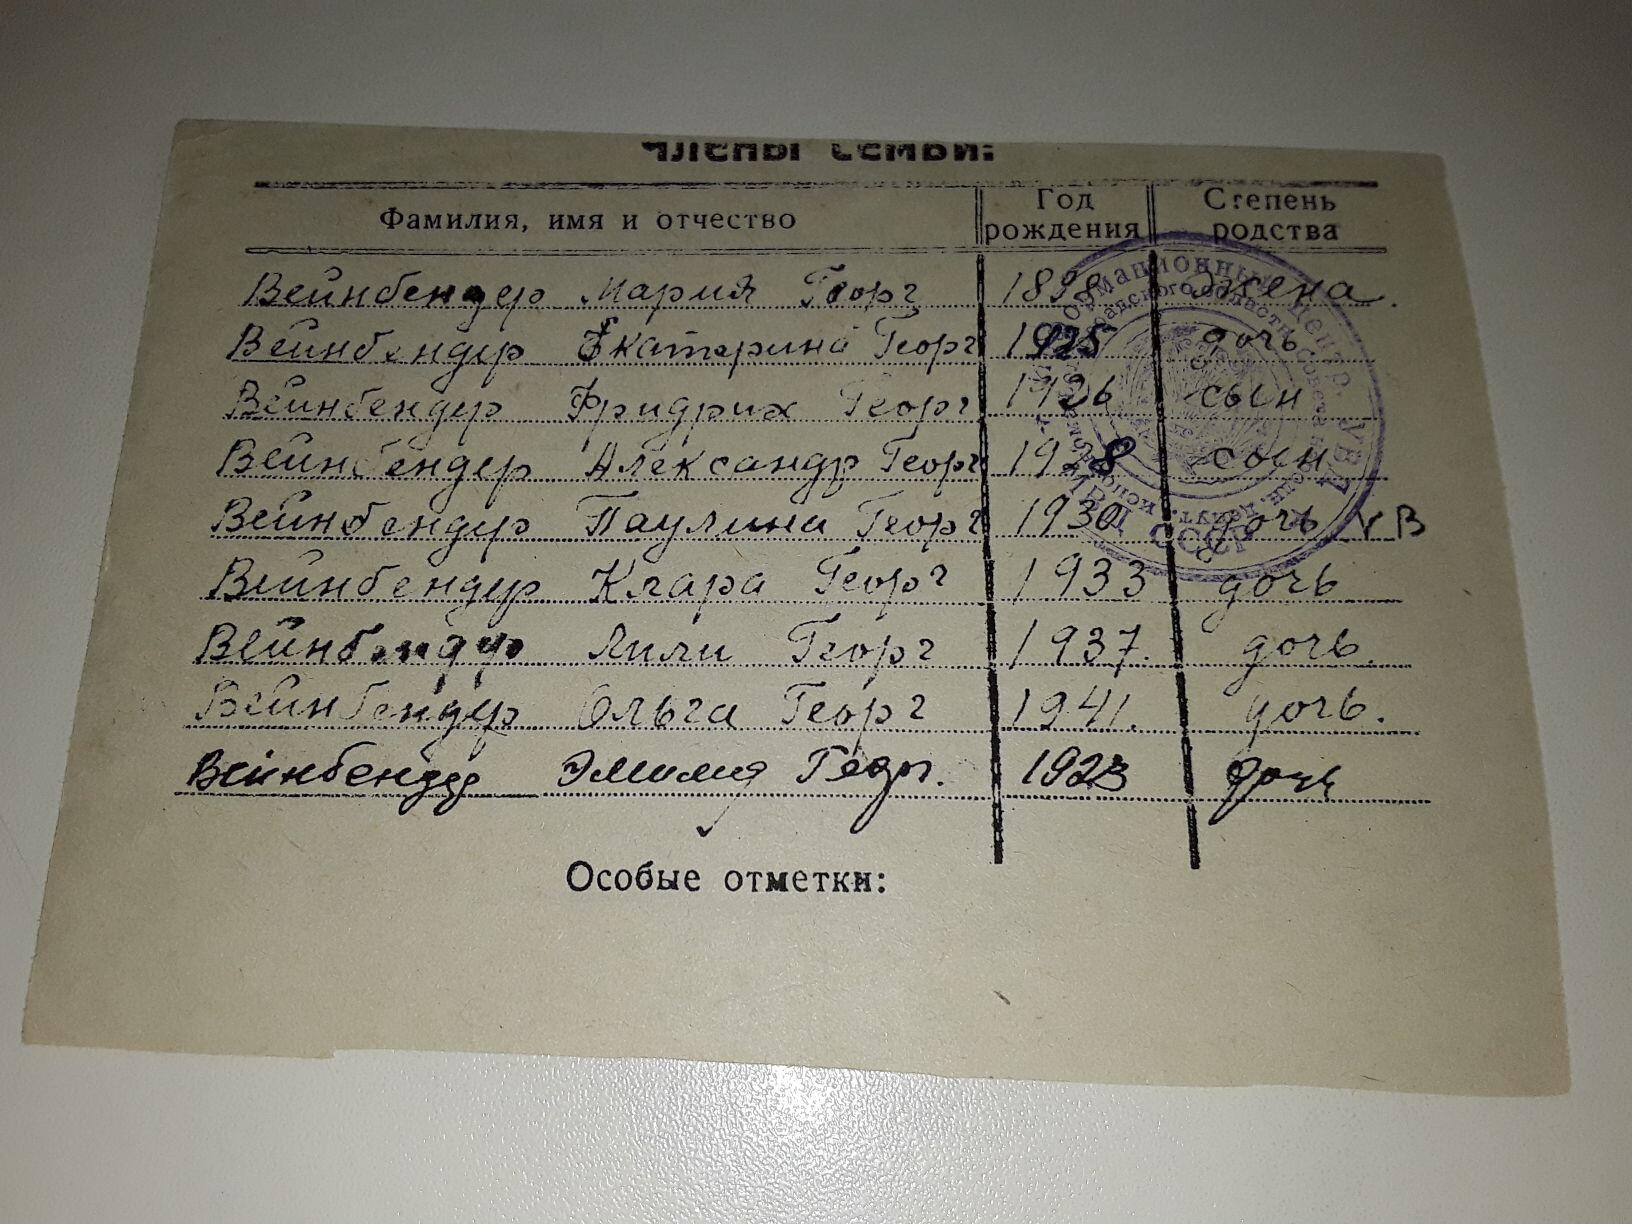 Члены семьи:
Фамилия, имя и отчество Год рождения Степень родства
Вейнбендер Мария Георг 1898 жена.
Вейнбендер Екатерина Георг 1925 дочь
Вейнбендер Фридрих Георг 1926 сын
Вейнбендер Александр Георг 1928 сын
Вейнбендер Паулина Георг 1930 дочь
Вейнбендер Клара Георг 1933 дочь
Вейнбендер Лили Георг 1937. дочь.
Вейнбендер Ольга Георг 1941. дочь.
Вейнбендер Эмилия Георг. 1923 дочь
Особые отметки: